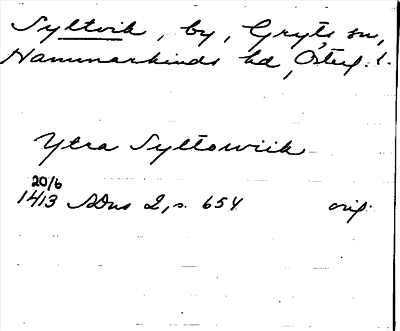 Syltvik, by, Gryts sn,
Hammarkinds hd, Östergl. l.
Ytra Syltowiik
20/6
1413 SDns 2, s. 654 orig.